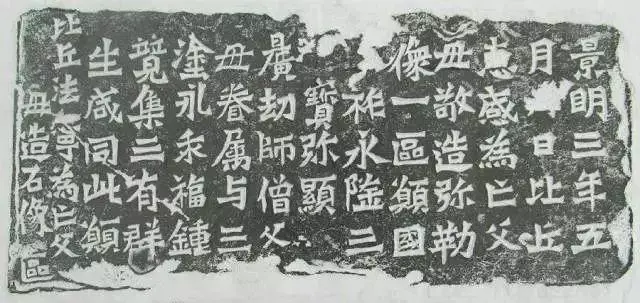 景明三年五
月日比丘
惠感為亡父
母敬造弥勒
像一區願國
祚永隆三
寶弥顯
廣劫師僧父
母眷属与三
塗永乖福鍾
竟集三有群
生咸同此願
比丘法寧為亡父
母造石像區